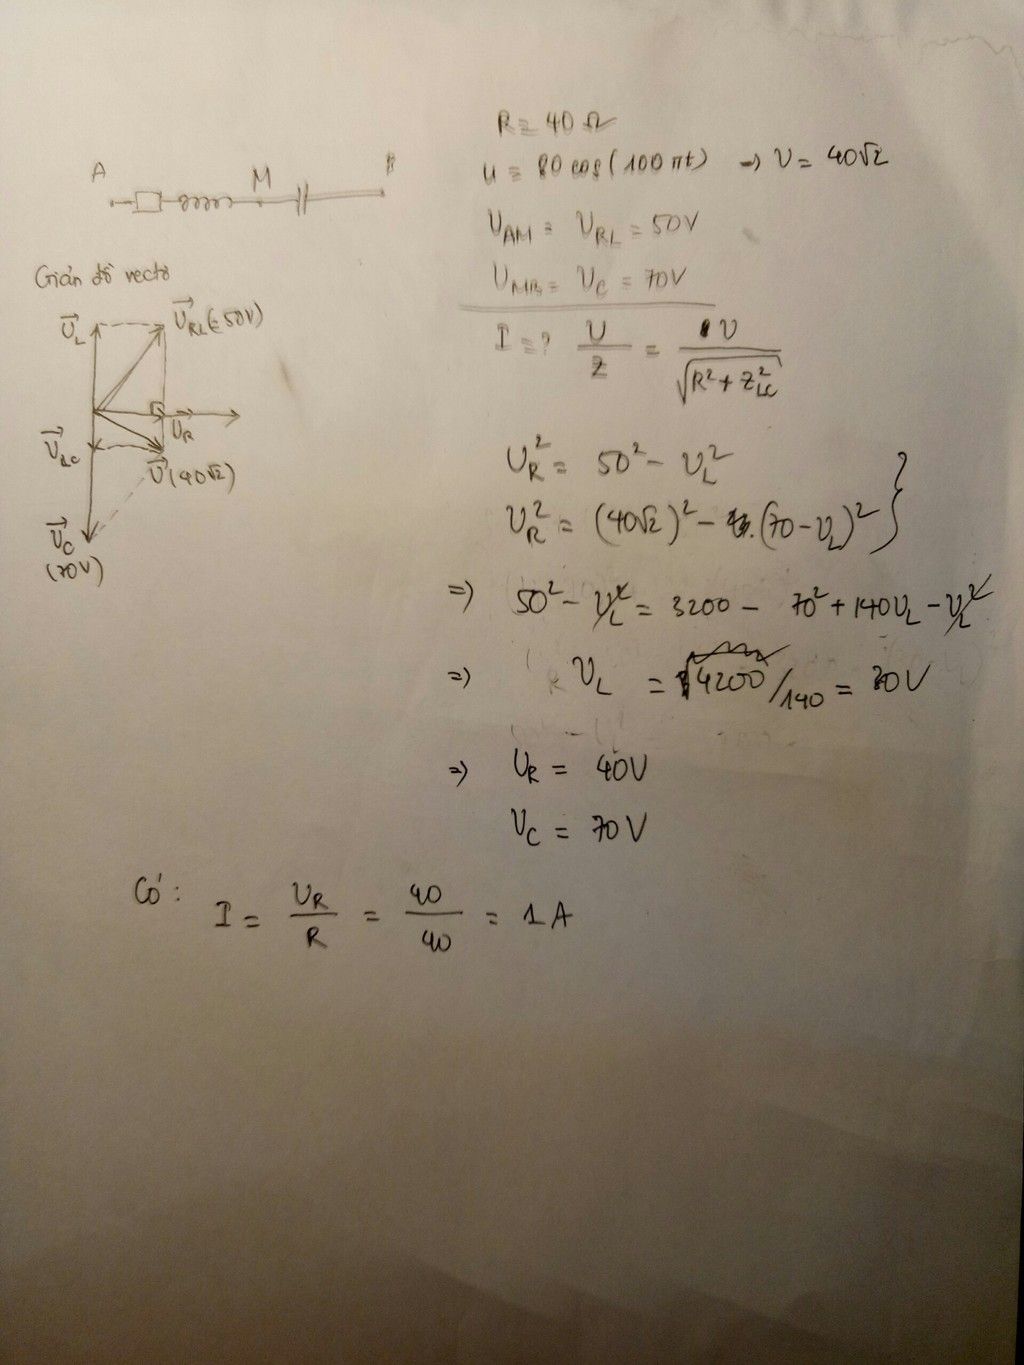 R = 40 Ω
u = 80 cos(100πt) => U = 40√2
A M B
U_AM = U_RL = 50V
U_MB = U_C = 70V
Giản đồ vectơ
I = ? U/Z = U/√(R² + Z²_LC)
U⃗_L U⃗_RL (=50V)
U⃗_R
U⃗_LC U⃗ (40√2)
U⃗_C
(70V)
U_R² = 50² - U_L²
U_R² = (40√2)² - (70 - U_L)² }
=> 50² - U_L² = 3200 - 70² + 140U_L - U_L²
=> U_L = 4200/140 = 30V
=> U_R = 40V
U_C = 70V
Có: I = U_R/R = 40/40 = 1A